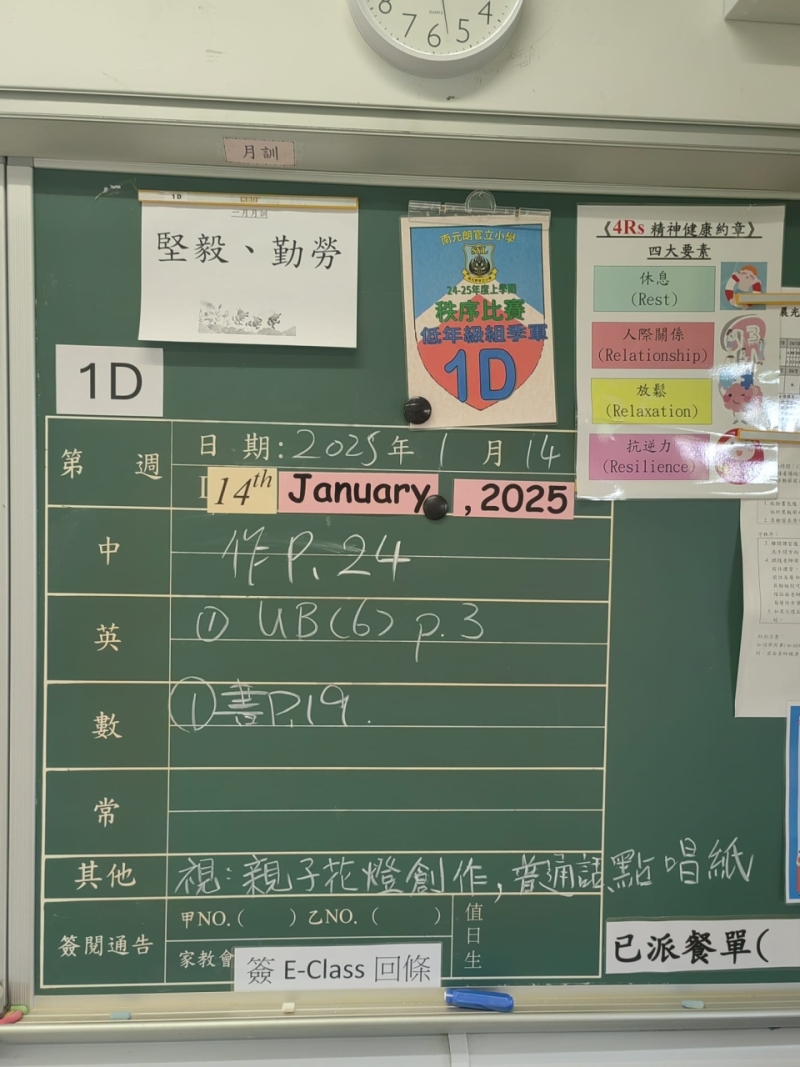 8 7 6 5 4
月訓
1D
一月月訓
堅毅、勤勞
南元朗官立小學
24-25年度上學期
秩序比賽
低年級組季軍
1D
《4Rs 精神健康約章》
四大要素
休息
(Rest)
人際關係
(Relationship)
放鬆
(Relaxation)
抗逆力
(Resilience)
1D
第 週
日期:2025年1月14
14th January, 2025
中
作P.24
英
① UB(6) p.3
數
①書P.19.
常
其他
視:親子花燈創作,普通話點唱紙
簽閱通告
甲NO.( ) 乙NO.( )
家教會
簽 E-Class 回條
值日生
已派餐單(